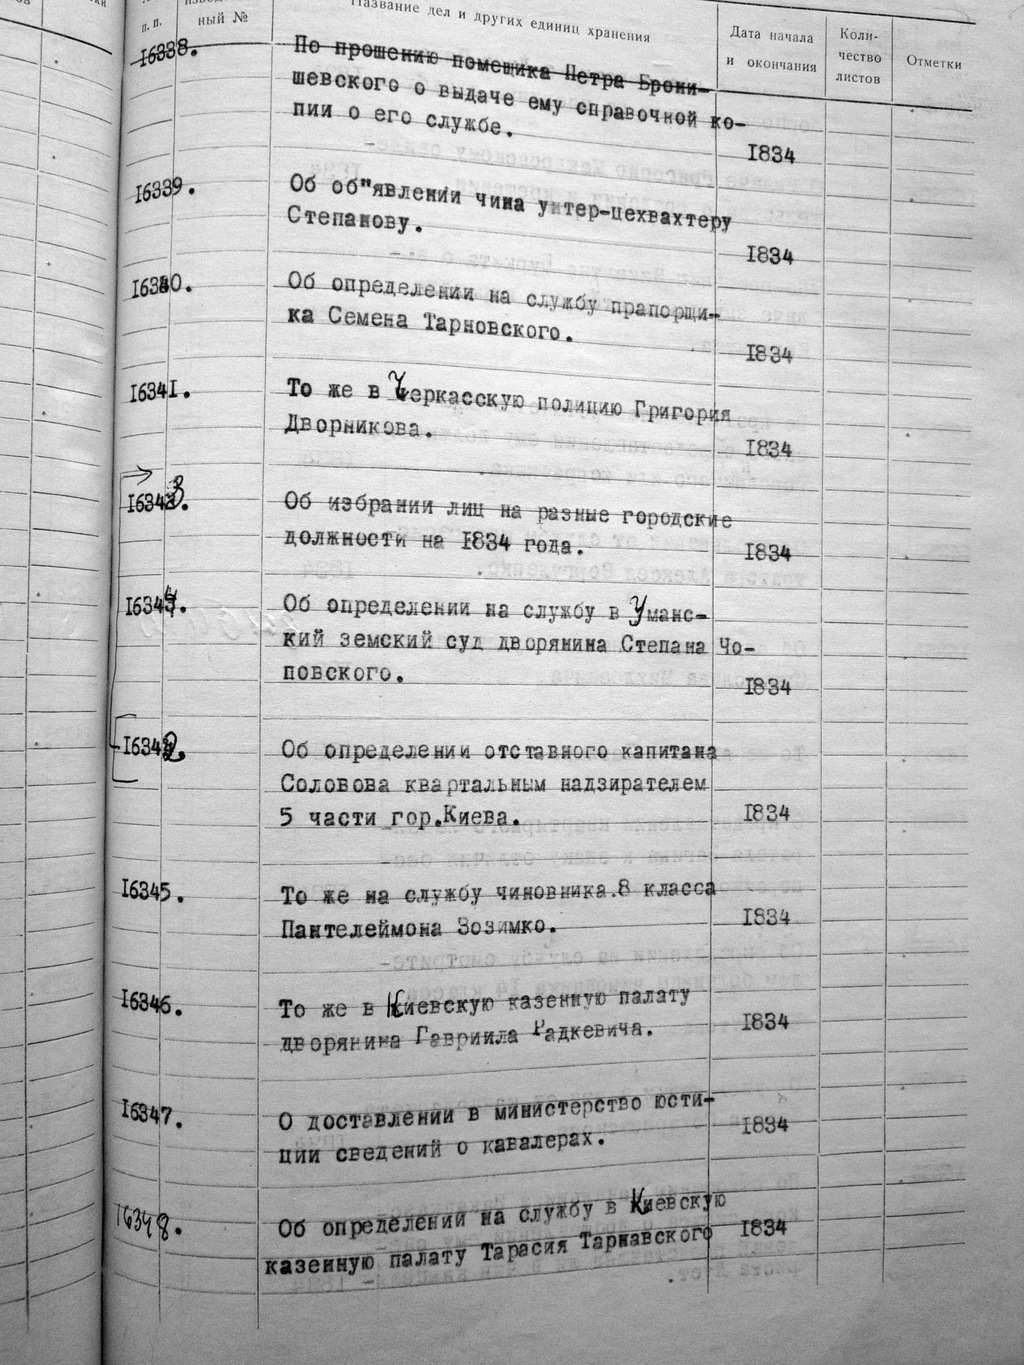 п.п.
ный №
Название дел и других единиц хранения
Дата начала
и окончания
Коли-
чество
листов
Отметки
16338.
По прошению помещика Петра Брони-
шевского о выдаче ему справочной ко-
пии о его службе.
1834
16339.
Об об"явлении чина унтер-цехвахтеру
Степанову.
1834
16340.
Об определении на службу прапорщи-
ка Семена Тарновского.
1834
16341.
То же в Черкасскую полицию Григория
Дворникова.
1834
16343.
Об избрании лиц на разные городские
должности на 1834 года.
1834
16344.
Об определении на службу в Уманс-
кий земский суд дворянина Степана Чо-
повского.
1834
16342.
Об определении отставного капитана
Соловова квартальным надзирателем
5 части гор.Киева.
1834
16345.
То же на службу чиновника.8 класса
Пантелеймона Зозимко.
1834
16346.
То же в Киевскую казенную палату
дворянина Гавриила Радкевича.
1834
16347.
О доставлении в министерство юсти-
ции сведений о кавалерах.
1834
16348.
Об определении на службу в Киевскую
казенную палату Тарасия Тарнавского
1834